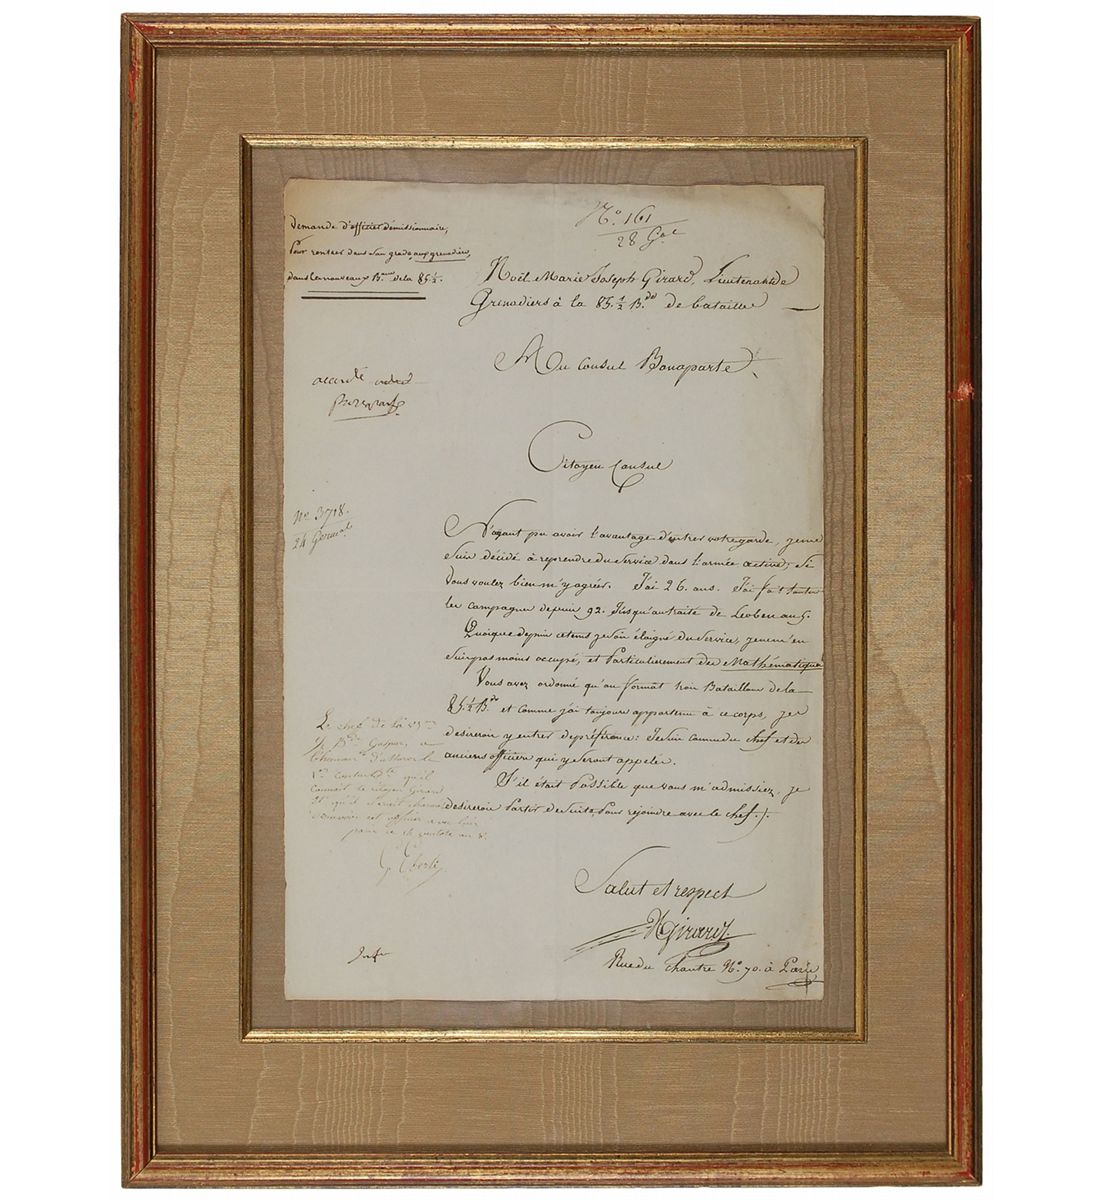 N.º 161
28 Gal
Demande d'officier démissionnaire,
Pour rentrer dans son grade aux grenadiers,
dans les nouveaux B.ons de la 85 ½.
Noël Marie Joseph Girard, Lieutenant de
Grenadiers à la 85. ½ B.de de bataille
Au Consul Bonaparte
accordé
Citoyen Consul
No 3718.
24 Germal
N'ayant pu avoir l'avantage d'entrer votre garde, je me
suis décidé à reprendre du service dans l'armée active, si
vous voulez bien m'y agréer. J'ai 26 ans. J'ai fait toutes
les campagnes depuis 92. Jusqu'au traité de Leoben an 5.
Quoique depuis ce tems je sois éloigné du service, je ne m'en
suis pas moins occupé, et particulièrement des Mathématiques
Vous avez ordonné qu'on format trois Bataillons de la
85. ½ B.de et comme j'ai toujours appartenu à ce corps, je
désirerois y entrer de préférence: Je suis connu du chef et des
anciens officiers qui y seront appelés.
S'il était possible que vous m'admissiez, je
desirerois partir de suite, pour rejoindre avec le chef.
Le chef de la
½ B.de
1er Consul qu'il
connait le citoyen Girard
et qu'il
officier
Salut et respect
NGirard
Rue du Chantre N.º 70. à Paris